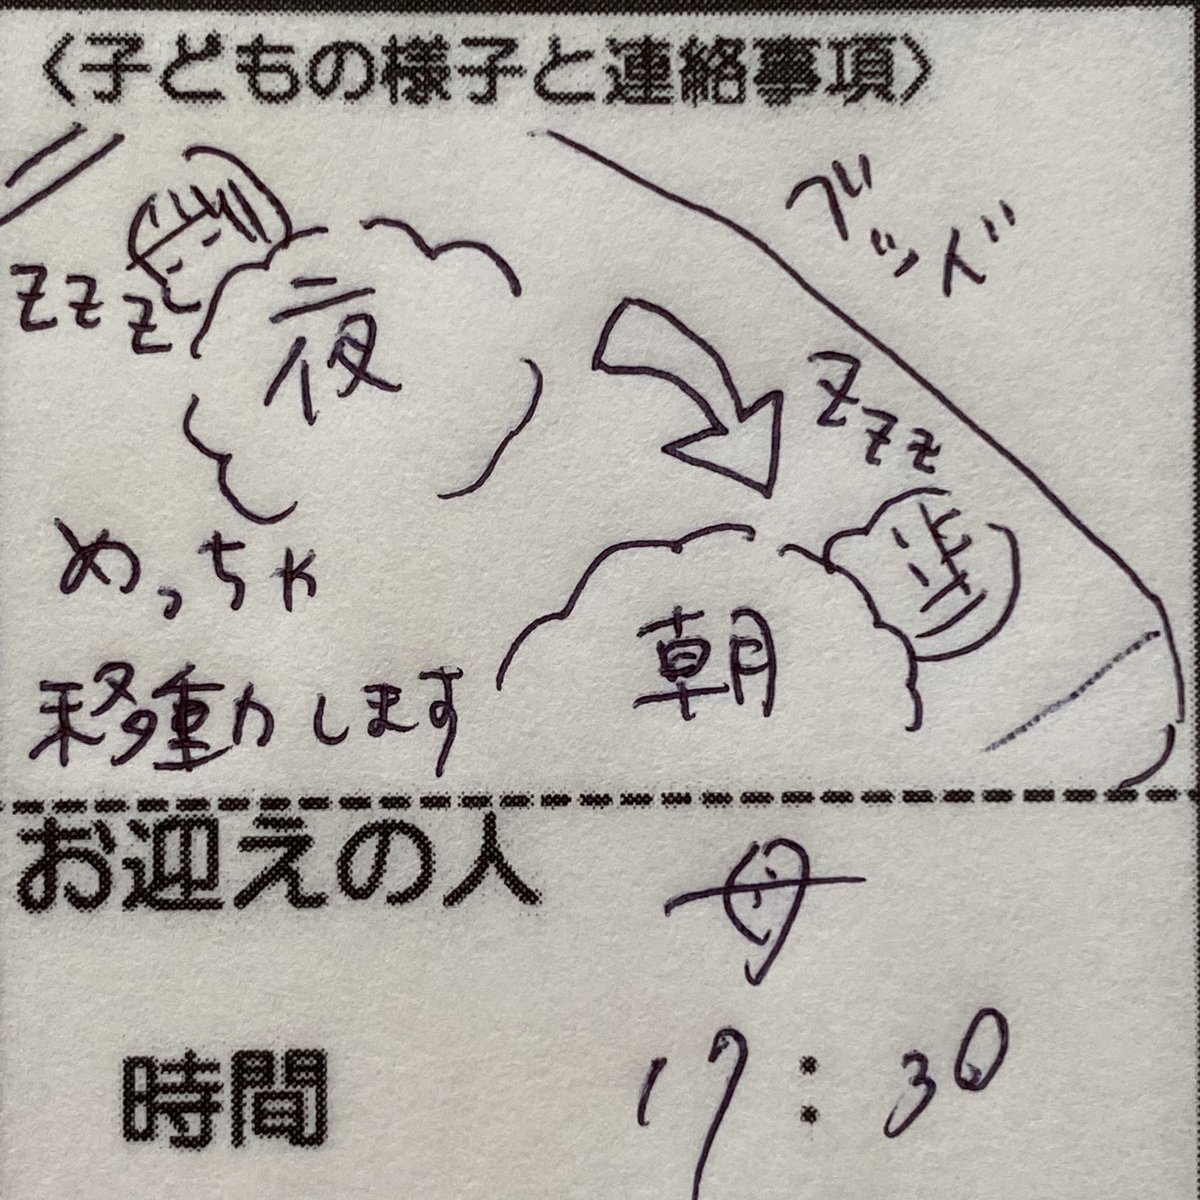 〈子どもの様子と連絡事項〉
zzz
夜
zzz
めっちゃ
移動します
朝
お迎えの人 母
時間 17:30